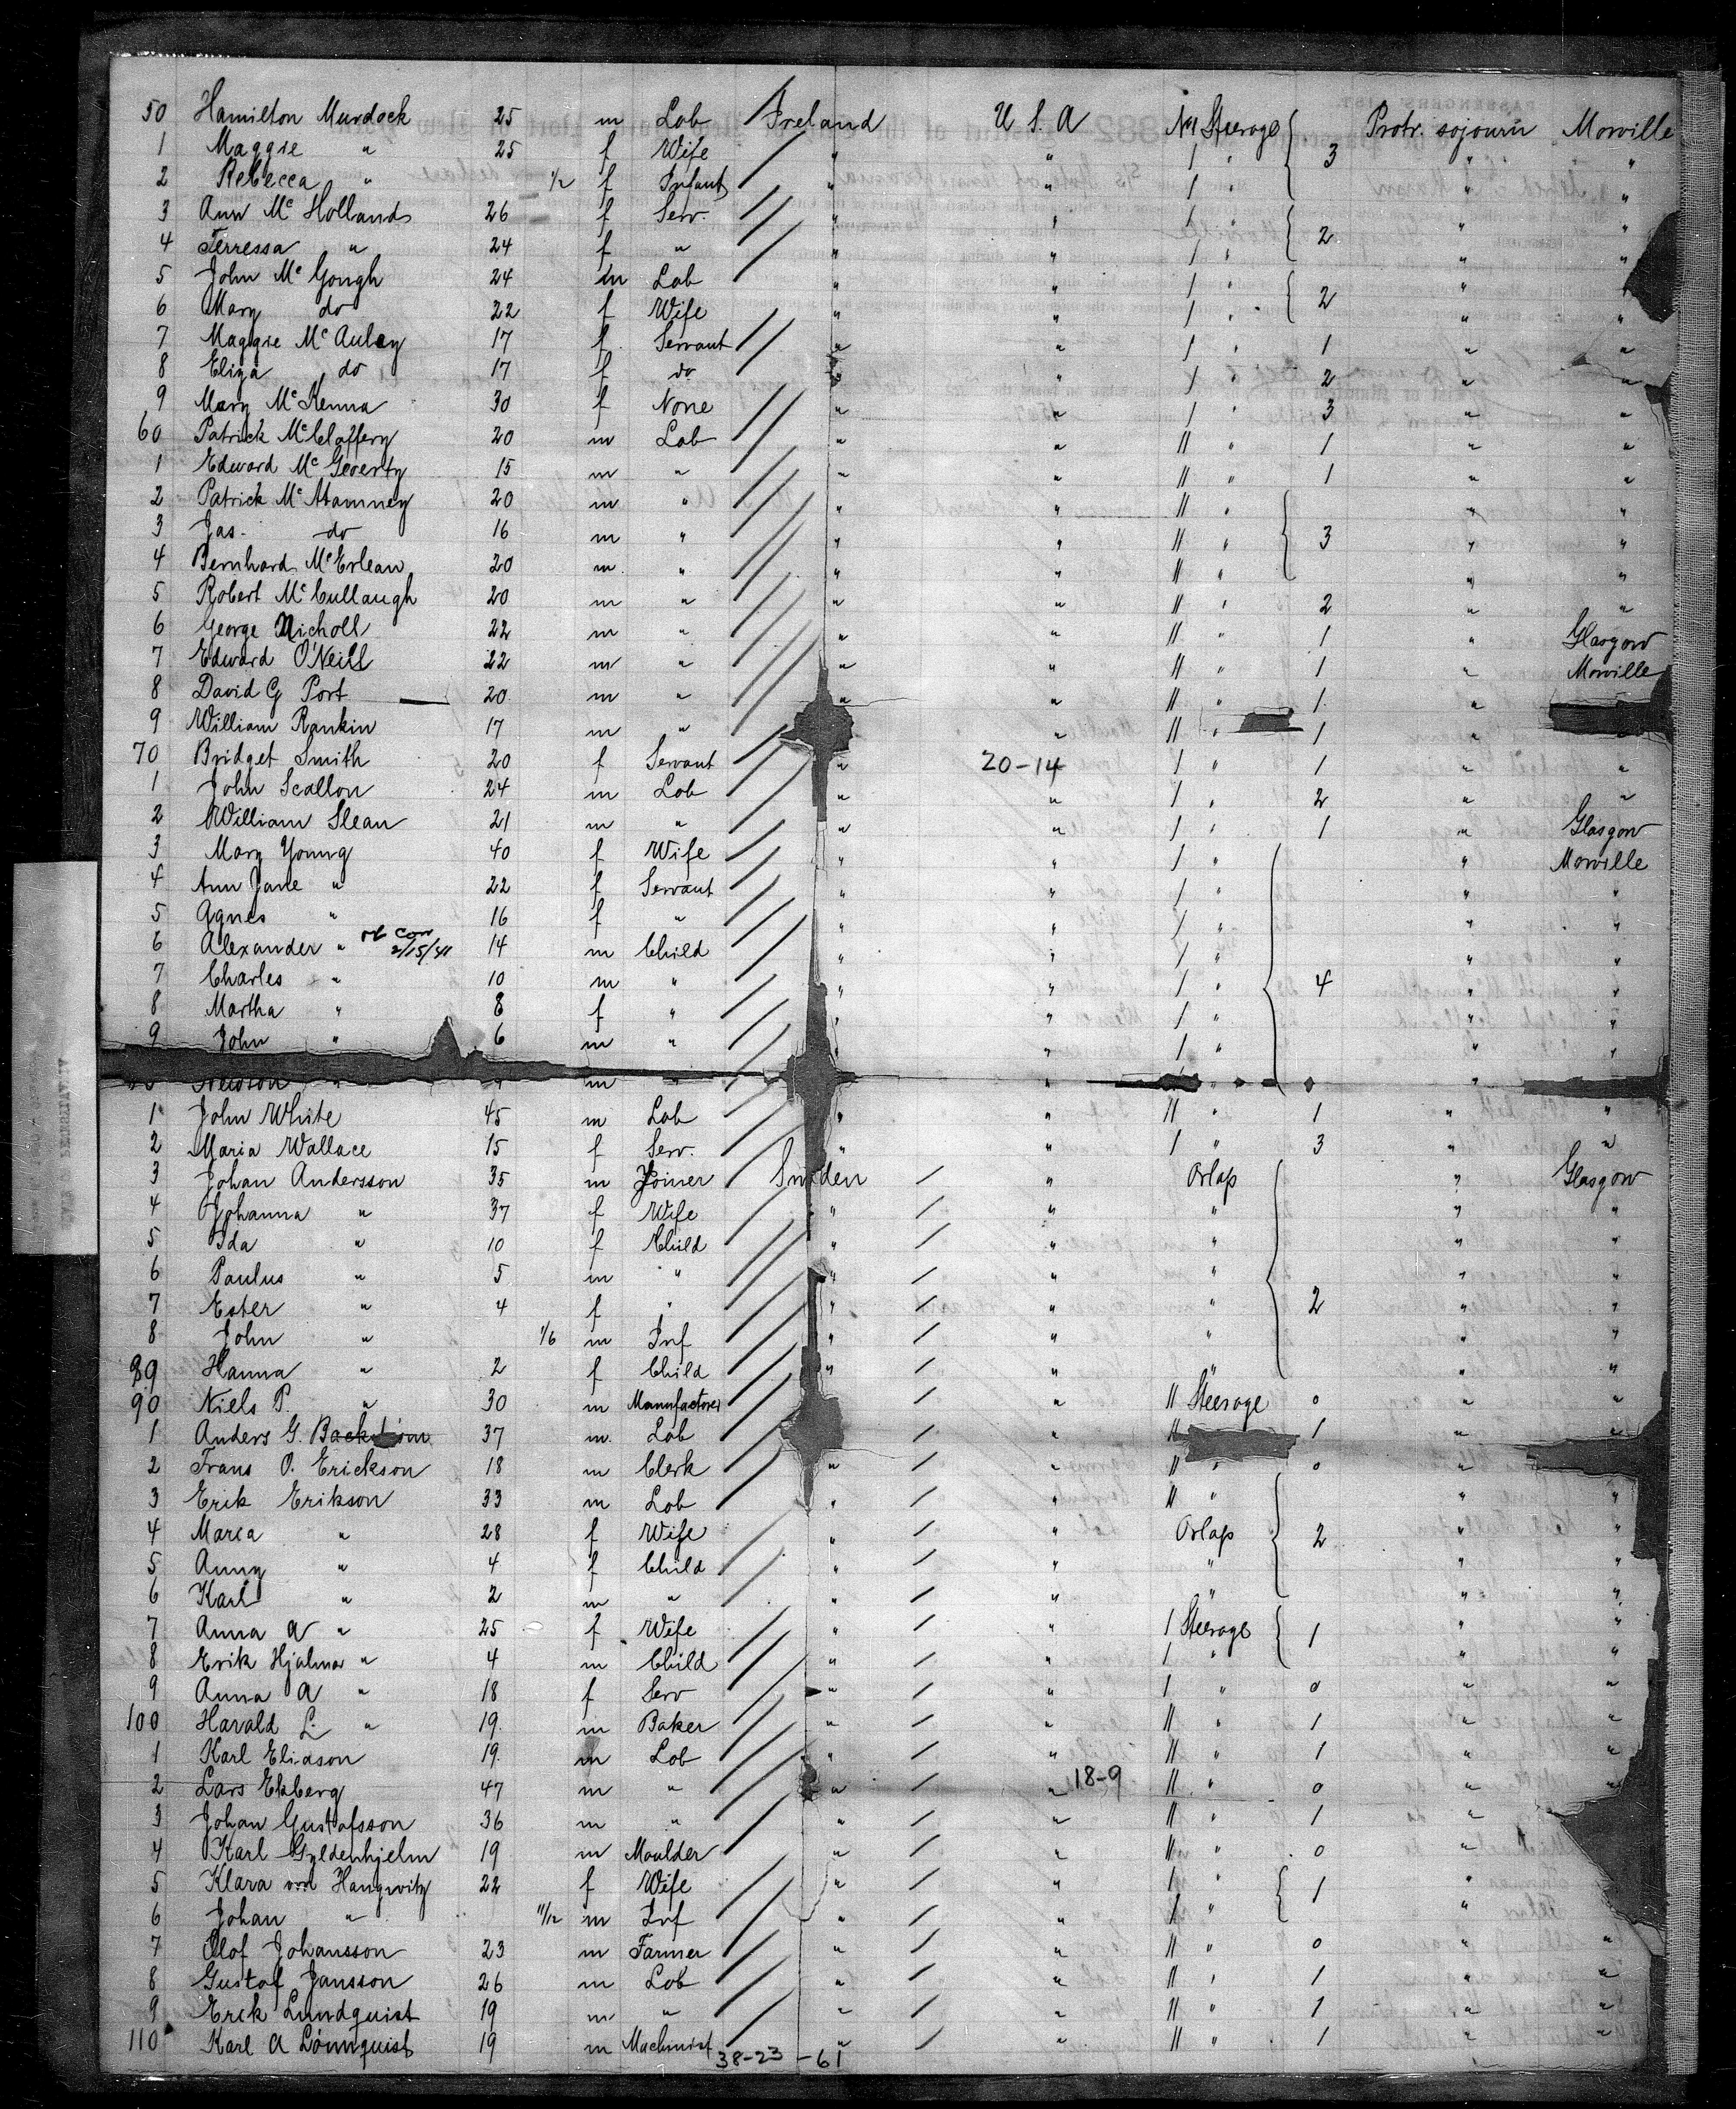 50 Hamilton Murdock 25 m Lab Ireland U.S.A No 1 Steerage 3 Protr. sojourn Moville
1 Maggie " 25 f Wife " " 1 " " "
2 Rebecca " 1/2 f Infant " " 1 " " "
3 Ann Mc Holland 26 f Serv. " " 1 " 2 " "
4 Terressa " 24 f " " " 1 " " "
5 John Mc Gough 24 m Lab " " 1 " 2 " "
6 Mary do 22 f Wife " " 1 " " "
7 Maggie Mc Auley 17 f Servant " " 1 " 1 " "
8 Eliza do 17 f do " " 1 " 2 " "
9 Mary Mc Kenna 30 f None " " 1 " 3 " "
60 Patrick McClaffery 20 m Lab " " 11 " 1 " "
1 Edward Mc Geverty 15 m " " " 11 " 1 " "
2 Patrick Mc Atamney 20 m " " " 11 " 3 " "
3 Jas. do 16 m " " " 11 " " "
4 Bernhard McErlean 20 m " " " 11 " " "
5 Robert Mc Cullaugh 20 m " " " 11 " 2 " "
6 George Nicholl 22 m " " " 11 " 1 " Glasgow
7 Edward O'Neill 22 m " " " 11 " 1 " Moville
8 David G Port 20 m " " " 11 " 1 "
9 William Rankin 17 m " " 11 " 1 "
70 Bridget Smith 20 f Servant " 20-14 " 1 " 1 " "
1 John Scallon 24 m Lab " " 1 " 2 " "
2 William Slean 21 m " " " 1 " 1 " Glasgow
3 Mary Young 40 f Wife " " 1 " 4 " Moville
4 Ann Jane " 22 f Servant " " 1 " " "
5 Agnes " 16 f " " " 1 " " "
6 Alexander " 2/15/41 14 m Child " " 1 " " "
7 Charles " 10 m " " " 1 " " "
8 Martha " 8 f " " " 1 " " "
9 John " 6 m " " " 1 " " "
" m " " " "
1 John White 45 m Lab " " 11 " 1 " "
2 Maria Wallace 15 f Serv. " " 1 " 3 " "
3 Johan Andersson 35 m Joiner Sweden " Orlop 2 " Glasgow
4 Johanna " 37 f Wife " " " " "
5 Ida " 10 f Child " " " "
6 Paulus " 5 m " " " " " "
7 Ester " 4 f " " " " " "
8 John " 1/6 m Inf " " " " "
89 Hanna " 2 f Child " " " " "
90 Niels P. " 30 m Manufacturer " 11 Steerage 0 " "
1 Anders G. Backstrom 37 m Lab " 11 1 " "
2 Frans O. Erickson 18 m Clerk " " 11 " 0 "
3 Erik Erikson 33 m Lab " " 11 " 2 " "
4 Maria " 28 f Wife " " Orlop " "
5 Anny " 4 f Child " " " " "
6 Karl " 2 m " " " " " "
7 Anna A " 25 f Wife " " 1 Steerage 1 " "
8 Erik Hjalmar " 4 m Child " " 1 " " "
9 Anna A " 18 f Serv " " 1 " 0 " "
100 Harald L. " 19 m Baker " " 11 " 1 " "
1 Karl Eliason 19 m Lab " " 11 " 1 " "
2 Lars Ekberg 47 m " " " 18-9 11 " 0 " "
3 Johan Gustafsson 36 m " " " 11 " 1 "
4 Karl Gyldenhjelm 19 m Moulder " " 11 " 0 "
5 Klara von Haugwitz 22 f Wife " " 1 " 1 "
6 Johan " 11/12 m Inf " " 1 " "
7 Olof Johansson 23 m Farmer " " 11 " 0 " "
8 Gustaf Jansson 26 m Lab " " 11 " 1 " "
9 Erik Lundquist 19 m " " " 11 " 1 " "
110 Karl A Lönnquist 19 m Machinist " " 11 " 1 " "
38-23 -61